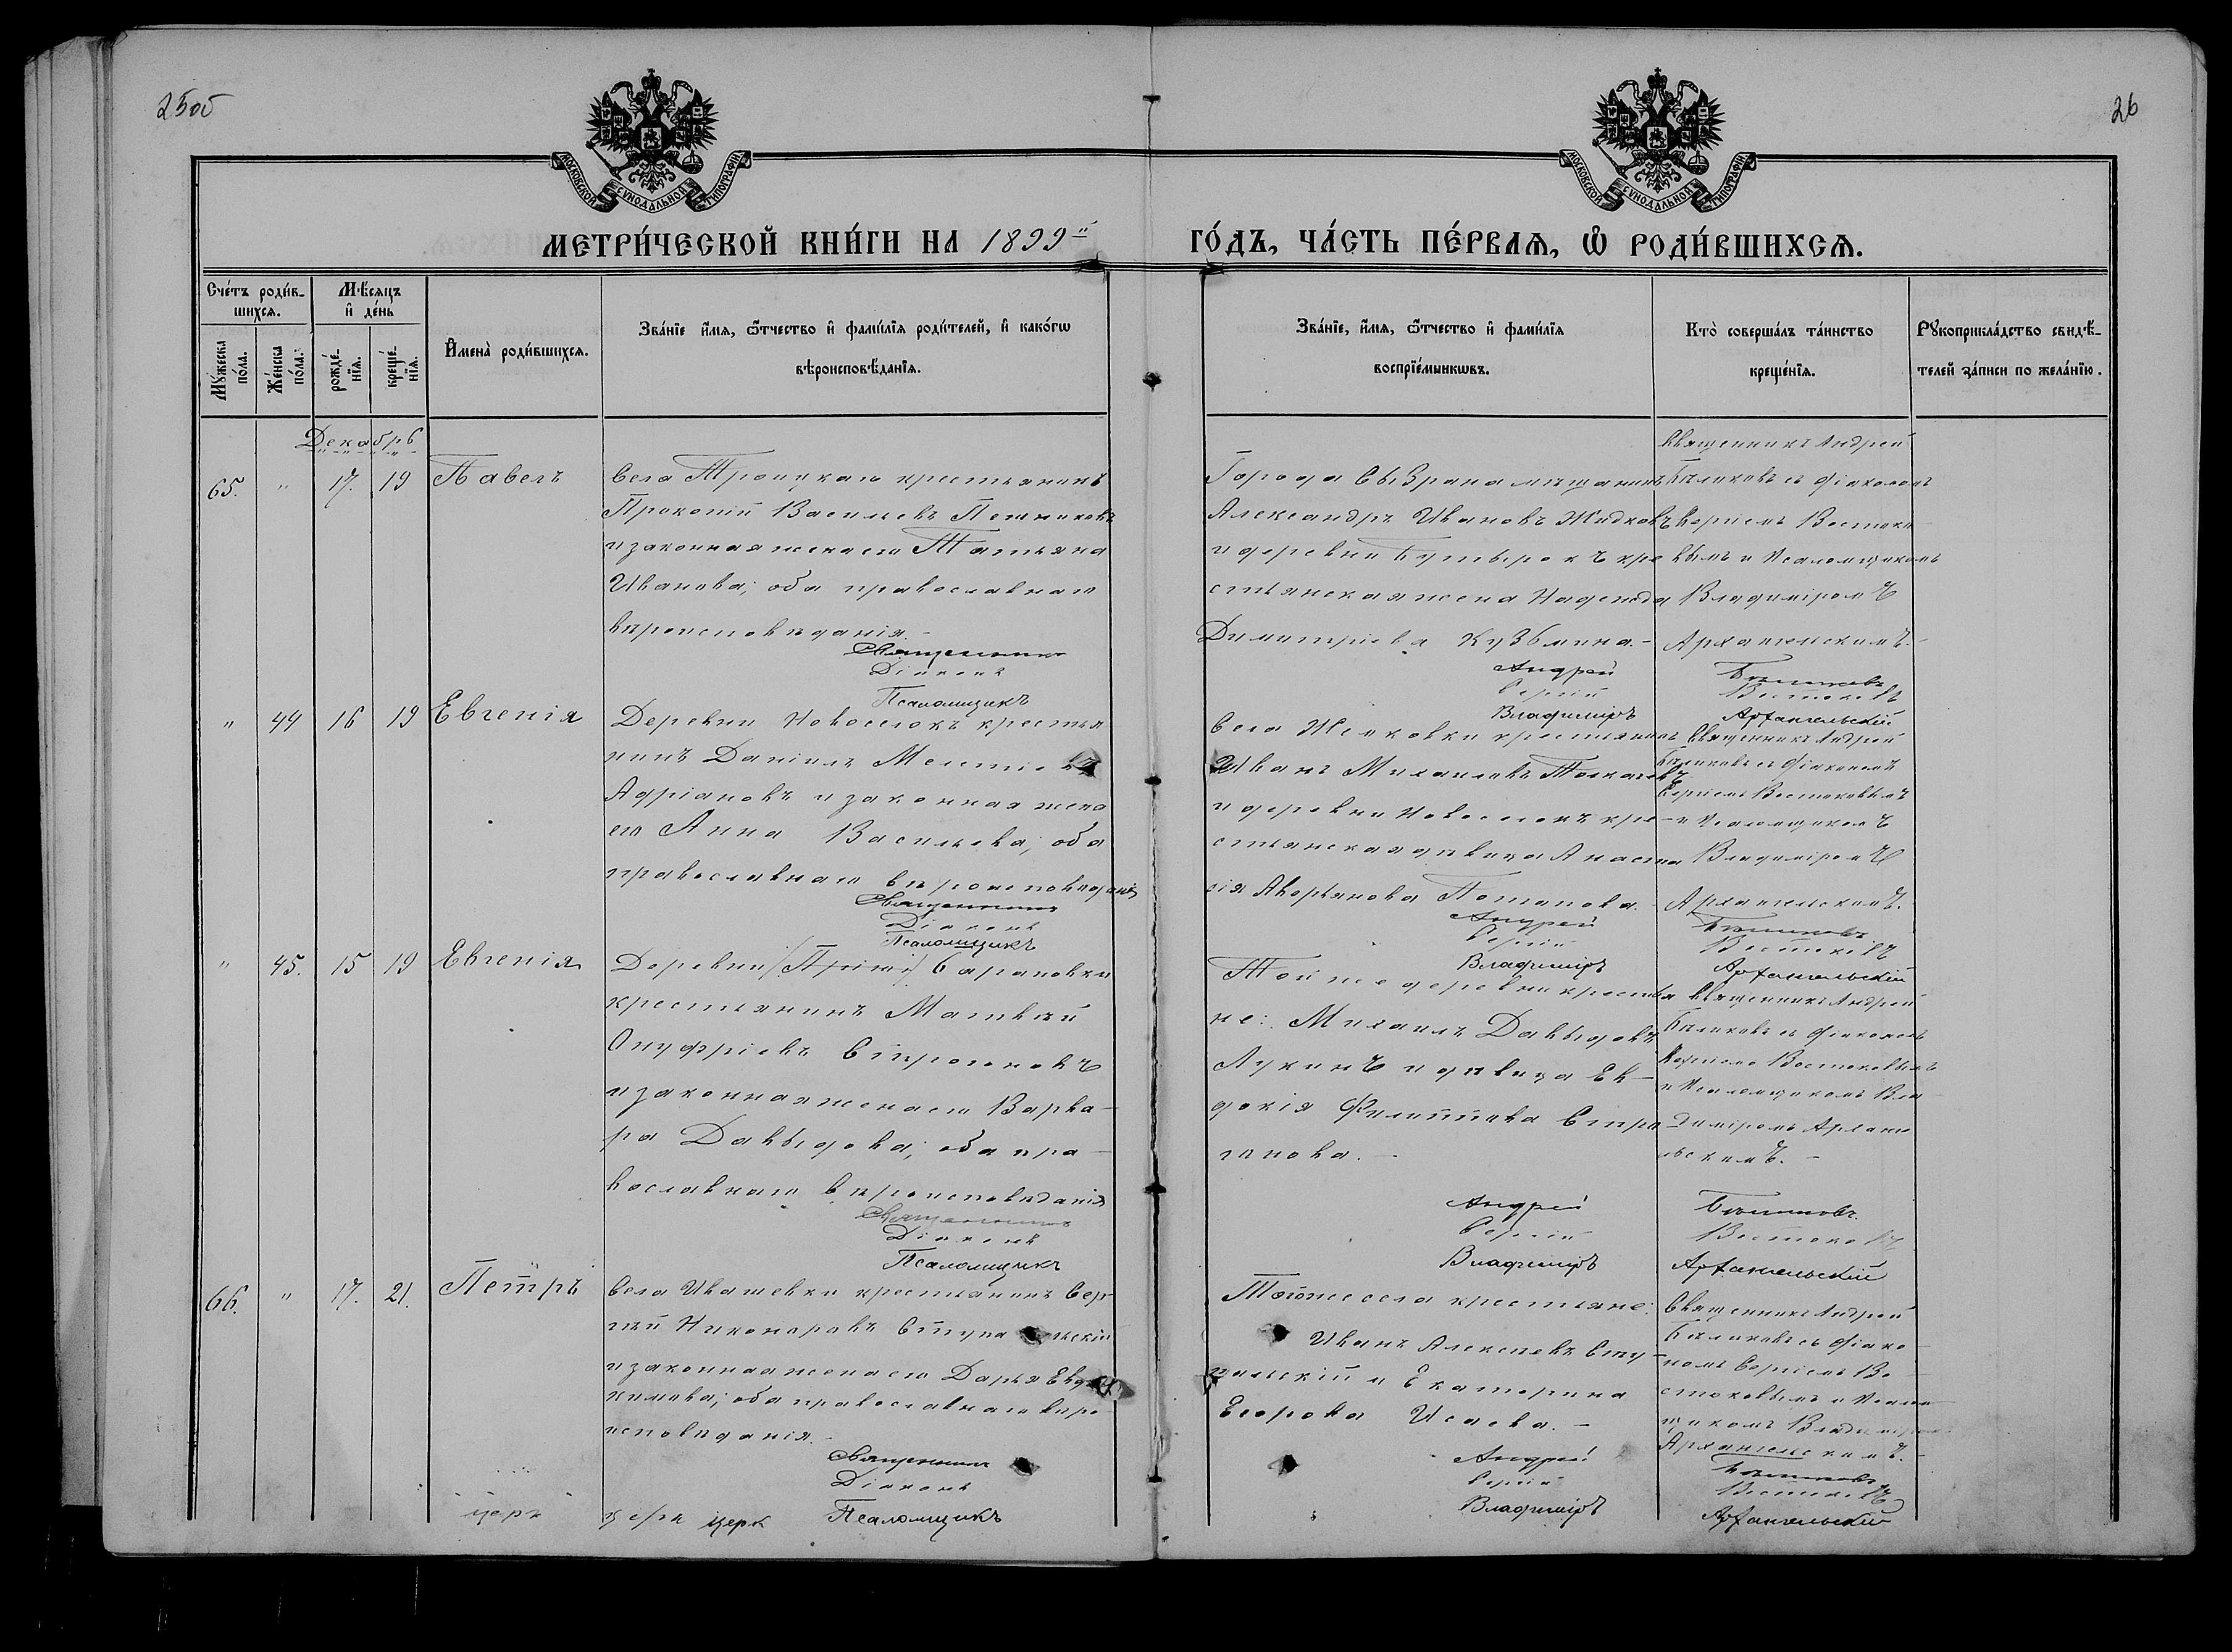 25об
26
МОСКОВСКОЙ СУНОДАЛЬНОЙ ТИПОГРАФІИ
МОСКОВСКОЙ СУНОДАЛЬНОЙ ТИПОГРАФІИ
МЕТРИ́ЧЕСКОЙ КНИ́ГИ НА 1899й
ГО́ДЪ, ЧА́СТЬ ПЕ́РВАЯ, Ѡ РОДИ́ВШИХСЯ.
Сче́тъ роди́в-
шихся.
Му́жеска по́ла.
Же́нска по́ла.
Мѣ́сяцъ
и де́нь
рожде́-
нїя.
креще́-
нїя.
Имена̀ роди́вшихся.
Зва́нїе и́мя, ѻ́тчество и фами́лїя роди́телей, и како́гѡ
вѣроисповѣ́данїя.
Зва́нїе, и́мя, ѻ́тчество и фами́лїя
воспрїе́мникѡвъ.
Кто̀ соверша́лъ та́инство
креще́нїя.
Рꙋкоприкла́дство свидѣ́-
телей за́писи по жела́нїю.
Декабрь
65. " 17. 19 Павелъ
Села Троицкаго крестьянинъ
Прокопій Васильевъ Пешниковъ
и законная жена его Татьяна
Иванова; оба православнаго
вѣроисповѣданія.-
Священникъ
Діаконъ
Псаломщикъ
Города Сызрана мѣщанинъ
Александръ Ивановъ Жидковъ
и деревни Бутырокъ кре
стьянская жена Надежда
Димитріева Кузьмина.-
Андрей
Сергій
Владиміръ
Священникъ Андрей
Бѣликовъ съ діакономъ
Сергіемъ Востоко
вымъ и Псаломщикомъ
Владиміромъ
Архангельскимъ.-
Бѣликовъ
Востоковъ
Архангельскій
" 44 16 19 Евгенія
Деревни Новоселокъ крестья
нинъ Даніилъ Мелетіевъ
Адріановъ и законная жена
его Анна Васильева; оба
православнаго вѣроисповѣданія
Священникъ
Діаконъ
Псаломщикъ
Села Жемковки крестьянинъ
Иванъ Михаиловъ Толкачевъ
и деревни Новоселокъ кре-
стьянская дѣвица Анаста
сія Аверьянова Потапова.
Андрей
Сергій
Владиміръ
Священникъ Андрей
Бѣликовъ съ діакономъ
Сергіемъ Востоковымъ
и Псаломщикомъ
Владиміромъ
Архангельскимъ.
Бѣликовъ
Востоковъ
Архангельскій
" 45. 15 19 Евгенія
Деревни Барановки
крестьянинъ Матвѣй
Онуфріевъ Строгоновъ
и законная жена его Варва-
ра Давыдова; оба пра-
вославнаго вѣроисповѣданія
Священникъ
Діаконъ
Псаломщикъ
Той же деревни крестья
не: Михаилъ Давыдовъ
Лукинъ и дѣвица Ев-
докія Филиппова Стро
гонова.-
Андрей
Сергій
Владиміръ
Священникъ Андрей
Бѣликовъ съ діакономъ
Сергіемъ Востоковымъ
и Псаломщикомъ Вла
диміромъ Арханге
льскимъ.-
Бѣликовъ.
Востоковъ
Архангельскій
66. " 17. 21. Петръ
Села Ивашевки крестьянинъ Сер
гѣй Никоноровъ
и законная жена его Дарья Евдо
кимова; оба православнаго вѣро
исповѣданія.-
Священникъ
Діаконъ
Псаломщикъ
Того же села крестьяне:
Иванъ Алексѣевъ Сту-
пальскій и Екатерина
Егорова Исаева.-
Андрей
Сергій
Владиміръ
Священникъ Андрей
Бѣликовъ съ діако
номъ Сергіемъ Во
стоковымъ и Псалом
щикомъ Владиміромъ
Архангельскимъ.-
Бѣликовъ
Востоковъ
Архангельскій
церк
церк церк